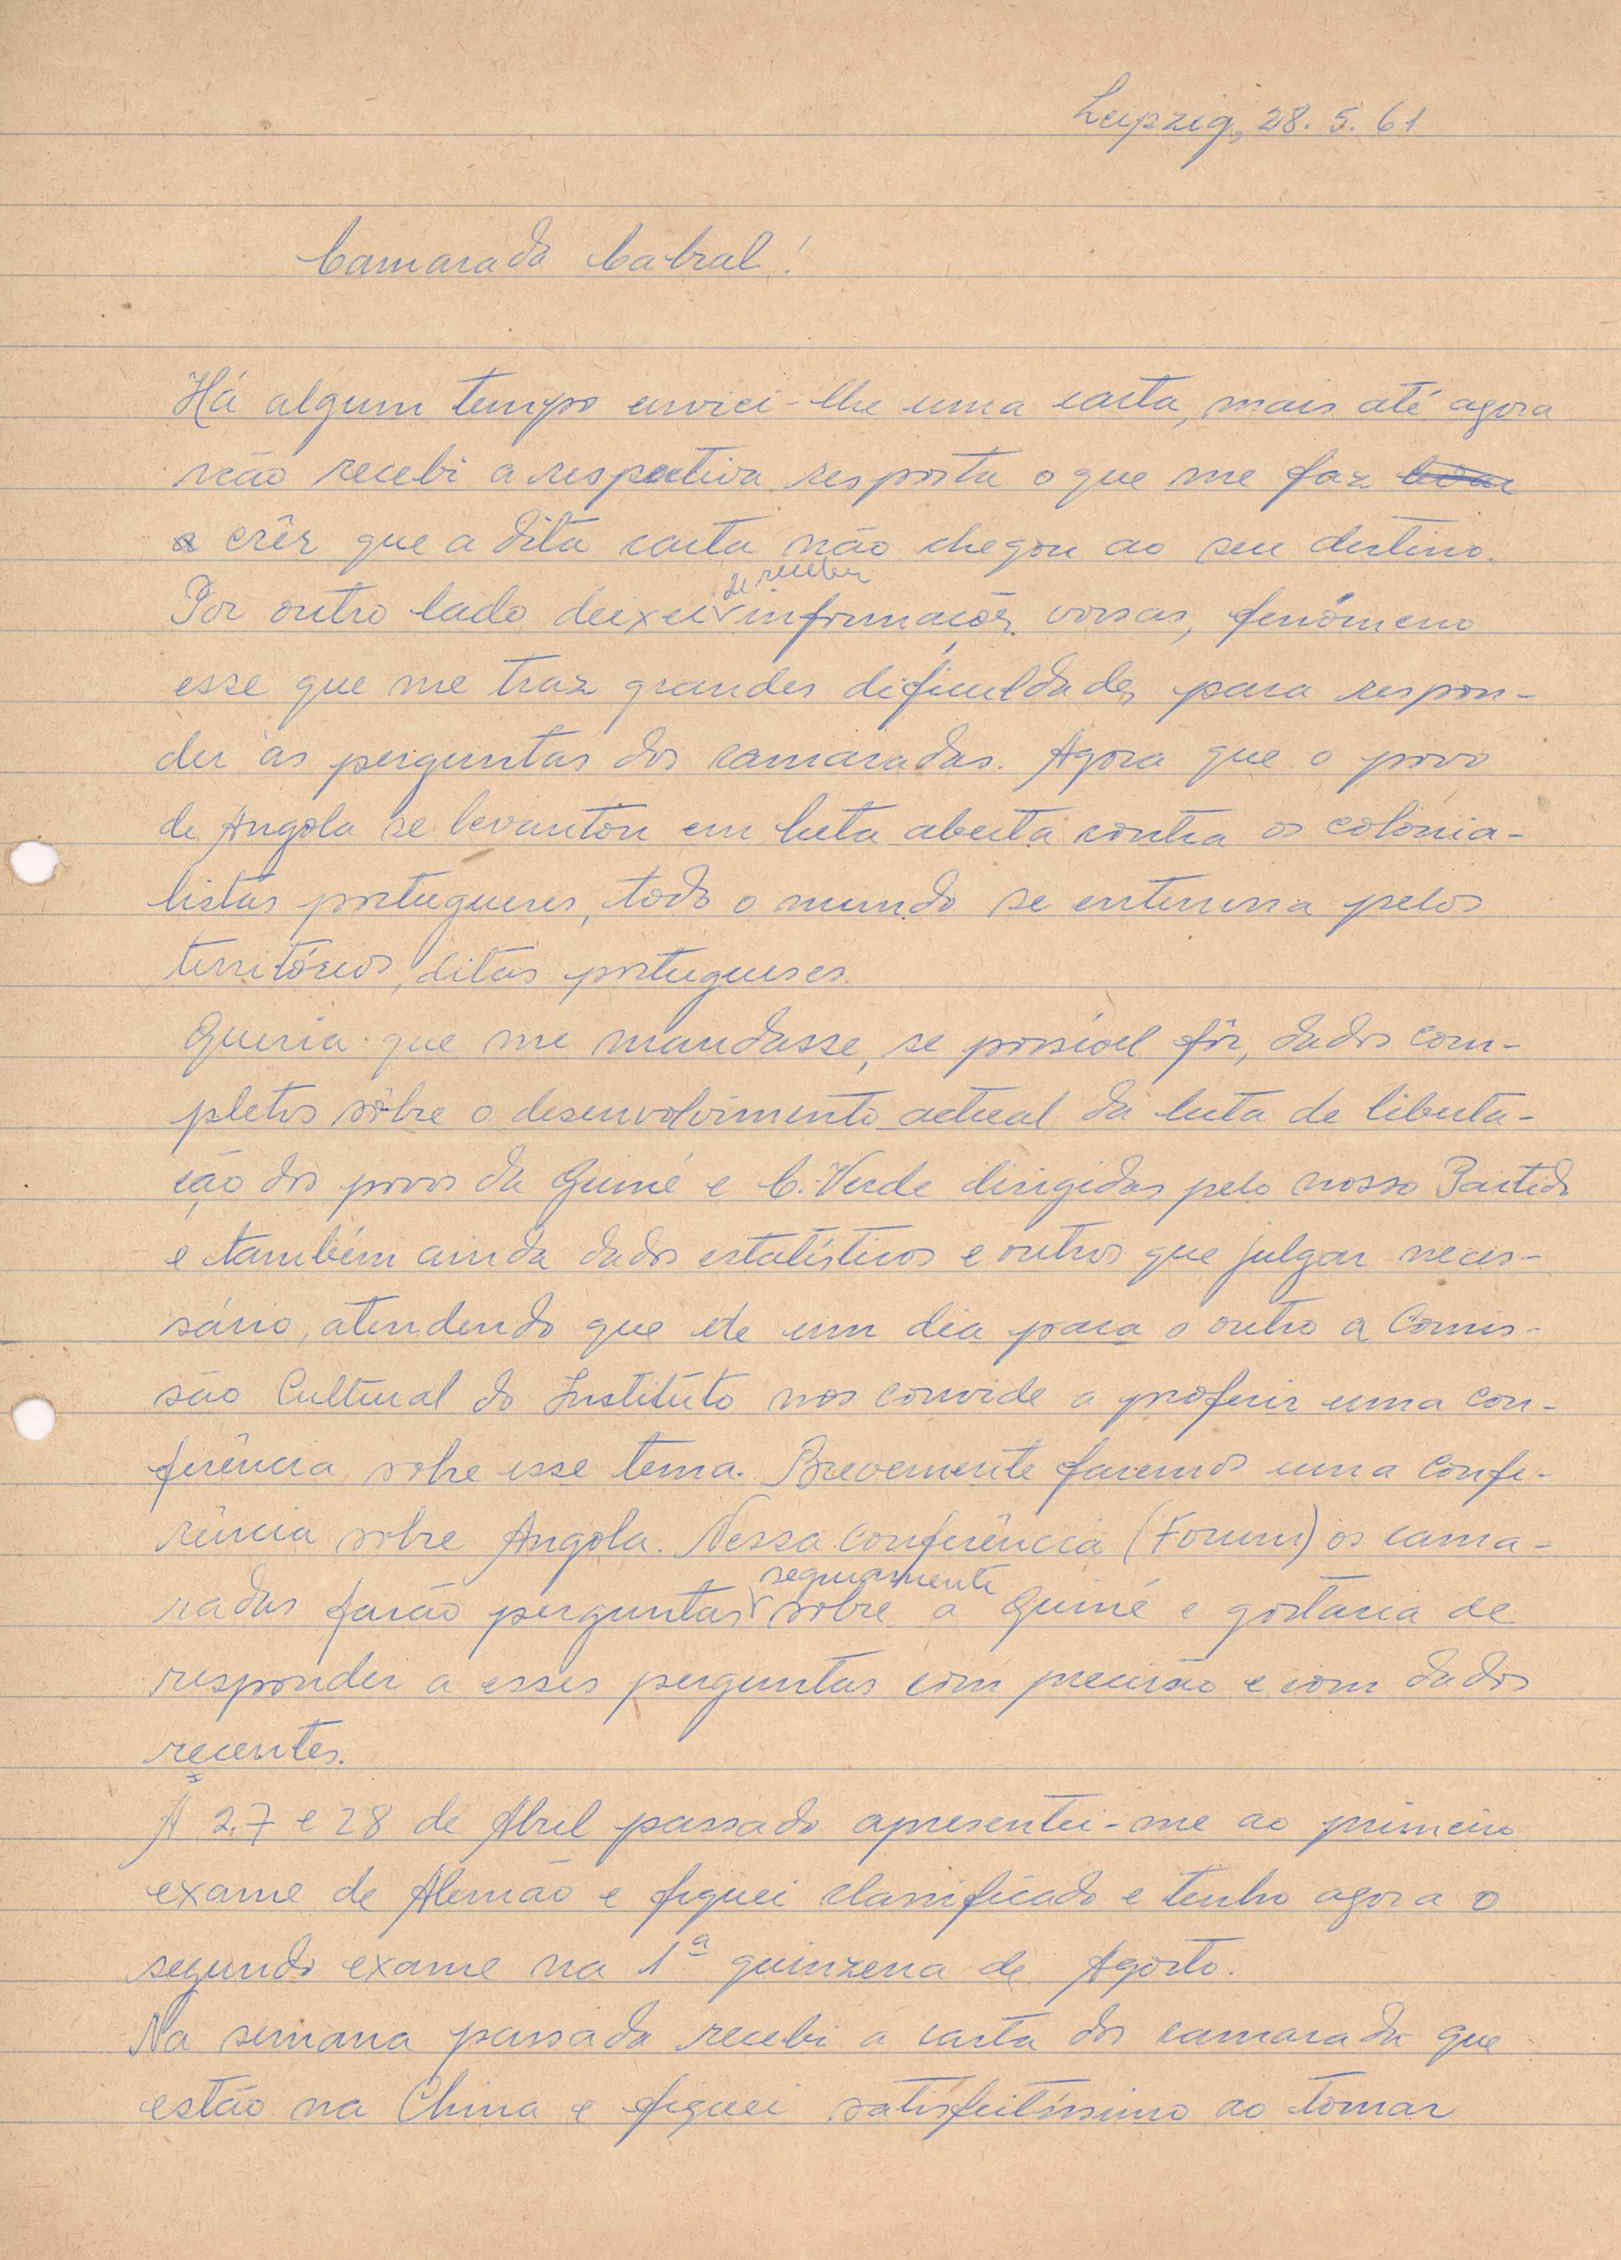 Leipzig, 28. 5. 61
Camarada Cabral!
Há algum tempo enviei-lhe uma carta, mais até agora
não recebi a respectiva resposta o que me faz
crêr que a dita carta não chegou ao seu destino.
Por outro lado deixei de receber informações vossas, fenómeno
esse que me traz grandes dificuldades para respon-
der as perguntas dos camaradas. Agora que o povo
de Angola se levantou em luta aberta contra os colonia-
listas portugueses, todo o mundo se enteressa pelos
territórios, ditos portugueses.
Queria que me mandasse, se possível fôr, dados com-
pletos sôbre o desenvolvimento actual da luta de liberta-
ção dos povos da Guiné e C. Verde dirigidas pelo nosso Partido
e também ainda dados estatísticos e outros que julgar neces-
sário, atendendo que de um dia para o outro a Comis-
são Cultural do Instituto nos convide a proferir uma con-
ferência sobre esse tema. Brevemente faremos uma confe-
rência sobre Angola. Nessa conferência (Forum) os cama-
radas farão perguntas seguramente sobre a Guiné e gostaria de
responder a esses perguntas com precisão e com dados
recentes.
A 27 e 28 de Abril passado apresentei-me ao primeiro
exame de Alemão e fiquei classificado e tenho agora o
segundo exame na 1ª quinzena de Agosto.
Na semana passada recebi a carta dos camarada que
estão na China e fiquei satisfeitíssimo ao tomar